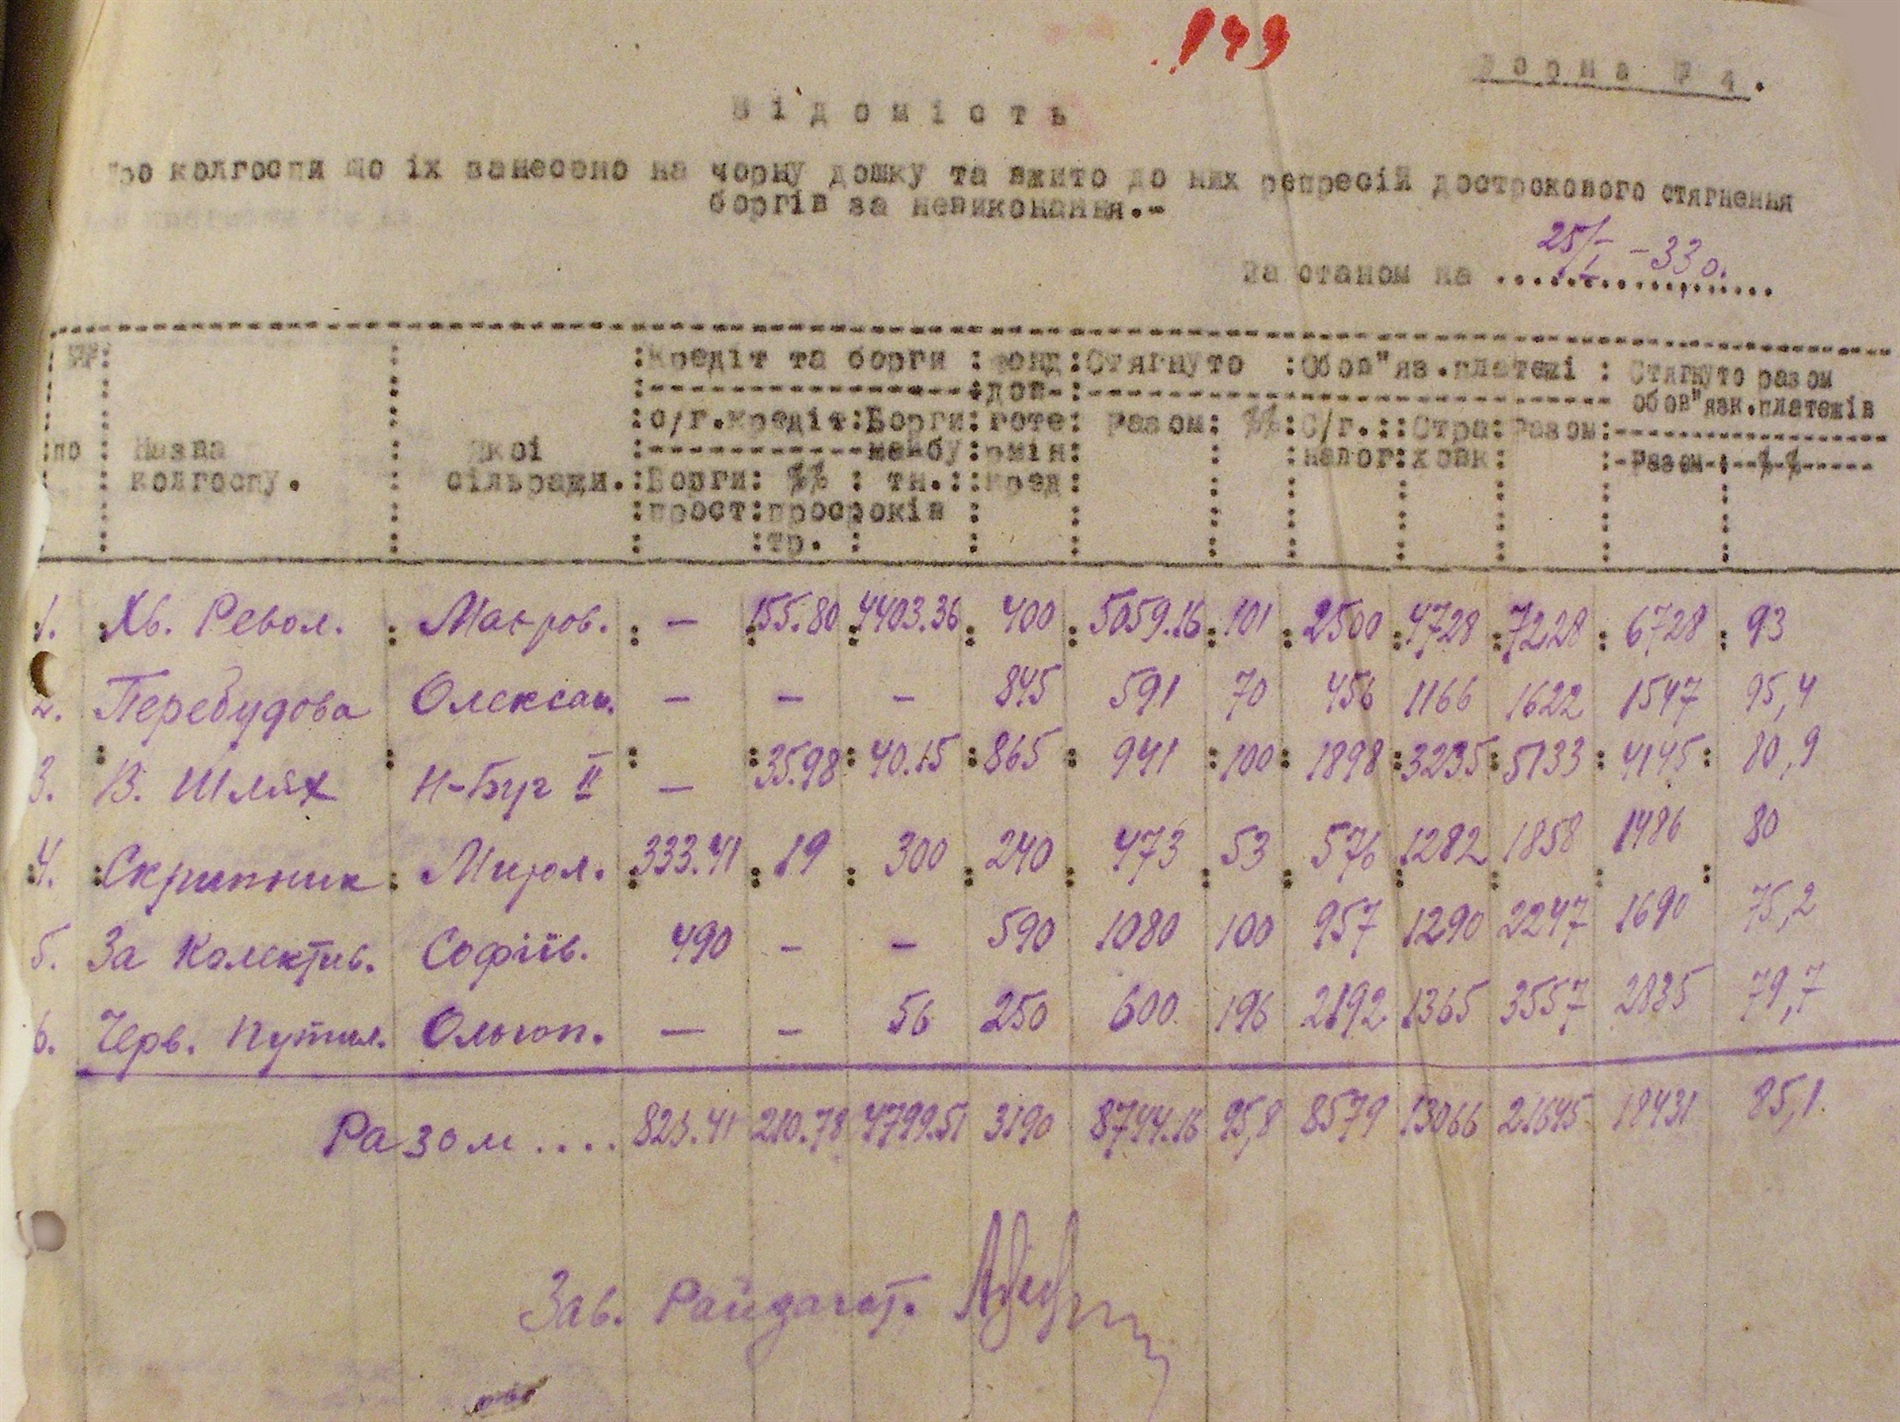 149
Форма № 4.
Відомість
Про колгоспи що їх занесено на чорну дошку та вжито до них репресій дострокового стягнення
боргів за невиконання.-
За станом на 25/I - 33 р.
№№ : Кредіт та борги : Фонд : Стягнуто : Обов"яз.платежі : Стягнуто разом
дов- обов"язк.платежів
с/г.кредіт : Борги : готе : Разом : %% : С/г. : Стра : Разом :
по : Назва : Якої майбу : рмін : налог : ховк : Разом : %%
колгоспу. сільради. : Борги : %% : тн. : кред
прост : просроків
тр.
1. Хв. Револ. Макров. — 155.80 4403.36 400 5059.16 101 2500 4728 7228 6728 93
2. Перебудова Олексан. — — — 845 591 70 456 1166 1622 1547 95,4
3. В. Шлях Н-Буг II — 35.98 40.15 865 941 100 1898 3235 5133 4145 80,9
4. Скрипник Мирол. 333.41 19 300 240 473 53 576 1282 1858 1486 80
5. За Колектив. Софіїв. 490 — — 590 1080 100 957 1290 2247 1690 75,2
6. Черв. Путил. Ольгоп. — — 56 250 600 196 2192 1365 3557 2835 79,7
Разом.... 823.41 210.78 4799.51 3190 8744.16 95,8 8579 13066 21645 18431 85,1
Зав. Райдагот.